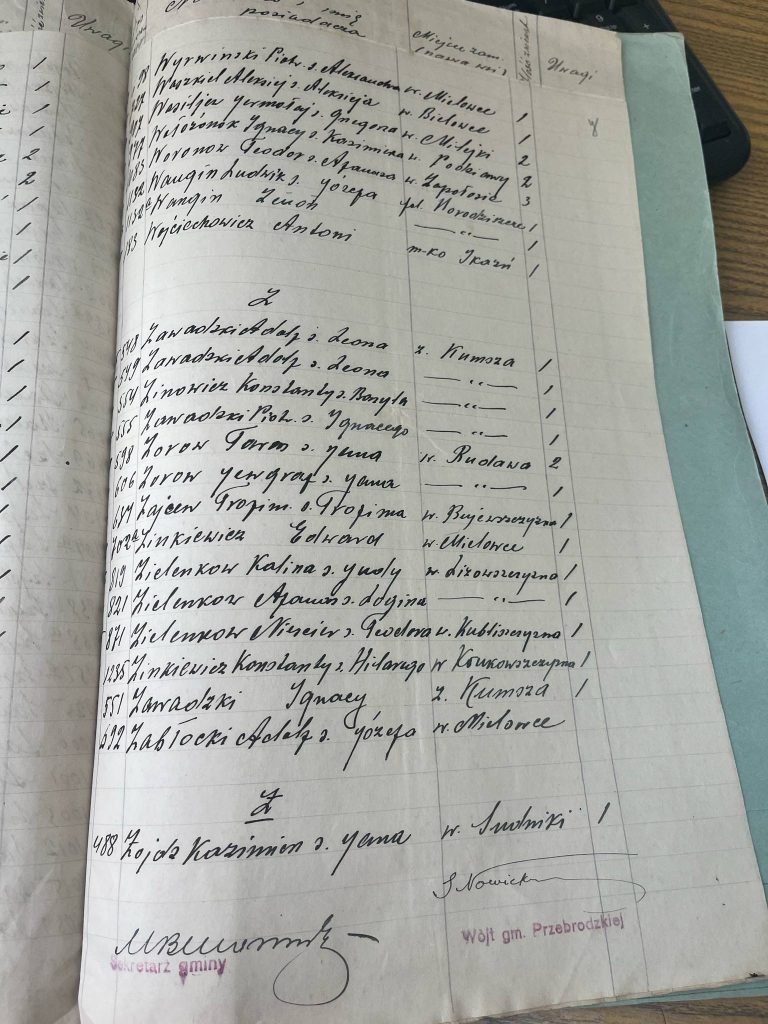 Uwagi
imię
posiadacza
Miejsce zam.
(nazwa wsi)
Uwagi
Wyrwiński Piotr s. Alexandra w. Mielowce 1
Waszkiel Aleksiej s. Aleksieja w. Bielowce 1
Wasiljew Jermołaj s. Gregora w. Milejki 2
Wołożonok Ignacy s. Kazimierza w. 2
Woronow Teodor s. Afanasa w. Zapołosie 3
Waugin Ludwik s. Józefa 1
Waugin Zenon —„— 1
Wojciechowicz Antoni m-ko Ikaźń 1
Z
548 Zawadzki Adolf s. Leona z. Kumsza 1
549 Zawadzki Adolf s. Leona —„— 1
554 Zinowicz Konstanty s. Bazyla —„— 1
555 Zawadzki Piotr s. Ignacego —„— 1
598 Zorow Taras s. Jana w. Rudawa 2
606 Zorow Jewgraf s. Jana —„— 1
687 Zajcew Trofim s. Trofima w. Bujewszczyzna 1
702a Zinkiewicz Edward w. Mielowce 1
819 Zielenkow Kalina s. Judy w. Lizowszczyzna 1
821 Zielenkow Afanas s. Login —„— 1
871 Zielenkow Niescier s. Teodora w. Kubliszczyzna 1
1235 Zinkiewicz Konstanty s. Hilarego w Krukowszczyzna 1
551 Zawadzki Ignacy z. Kumsza 1
692 Zabłocki Adolf s. Józefa w. Mielowce
Ż
488 Żojdź Kazimierz s. Jana w. Sudniki 1
S Nowick
Wójt gm. Przebrodzkiej
Sekretarz gminy